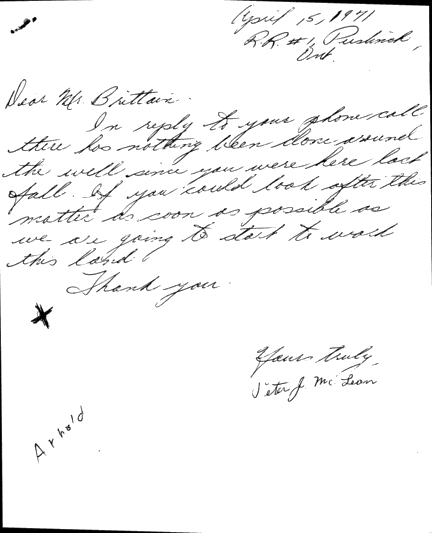 April 15, 1971
R.R. #1, Puslinch,
Ont.
Dear Mr. Brittain.
In reply to your phone call
there has nothing been done around
the well since you were here last
fall. If you could look after this
matter as soon as possible as
we are going to start to work
this land.
Thank you.
Yours truly,
Peter J McLean
Arnold